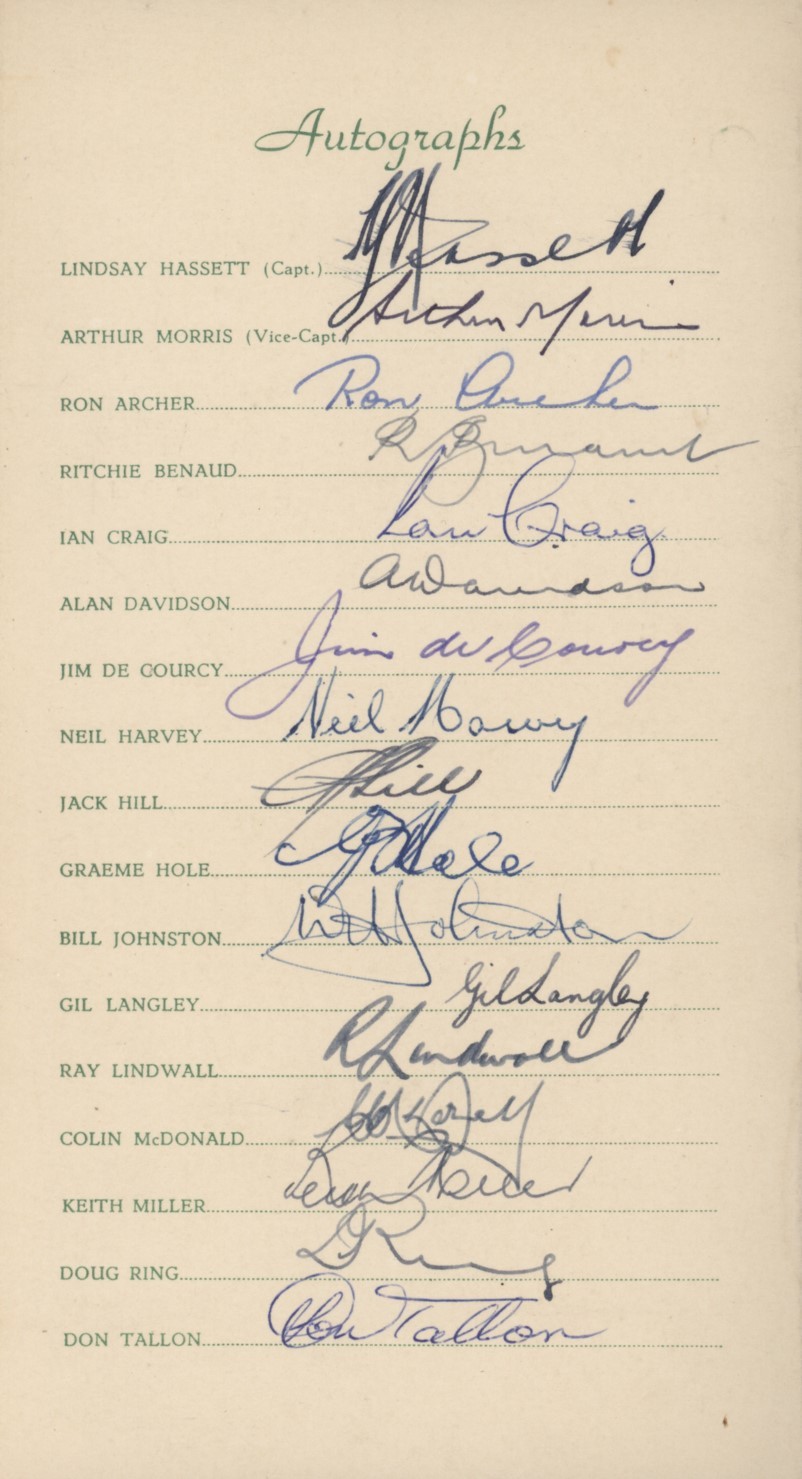 Autographs
LINDSAY HASSETT (Capt.) Hassett
ARTHUR MORRIS (Vice-Capt.) Arthur Morris
RON ARCHER Ron Archer
RITCHIE BENAUD R Benaud
IAN CRAIG Ian Craig
ALAN DAVIDSON AKDavidson
JIM DE COURCY Jim de Courcy
NEIL HARVEY Neil Harvey
JACK HILL JHill
GRAEME HOLE GHole
BILL JOHNSTON WAJohnston
GIL LANGLEY Gil Langley
RAY LINDWALL R Lindwall
COLIN McDONALD
KEITH MILLER Keith Miller
DOUG RING D Ring
DON TALLON Don Tallon